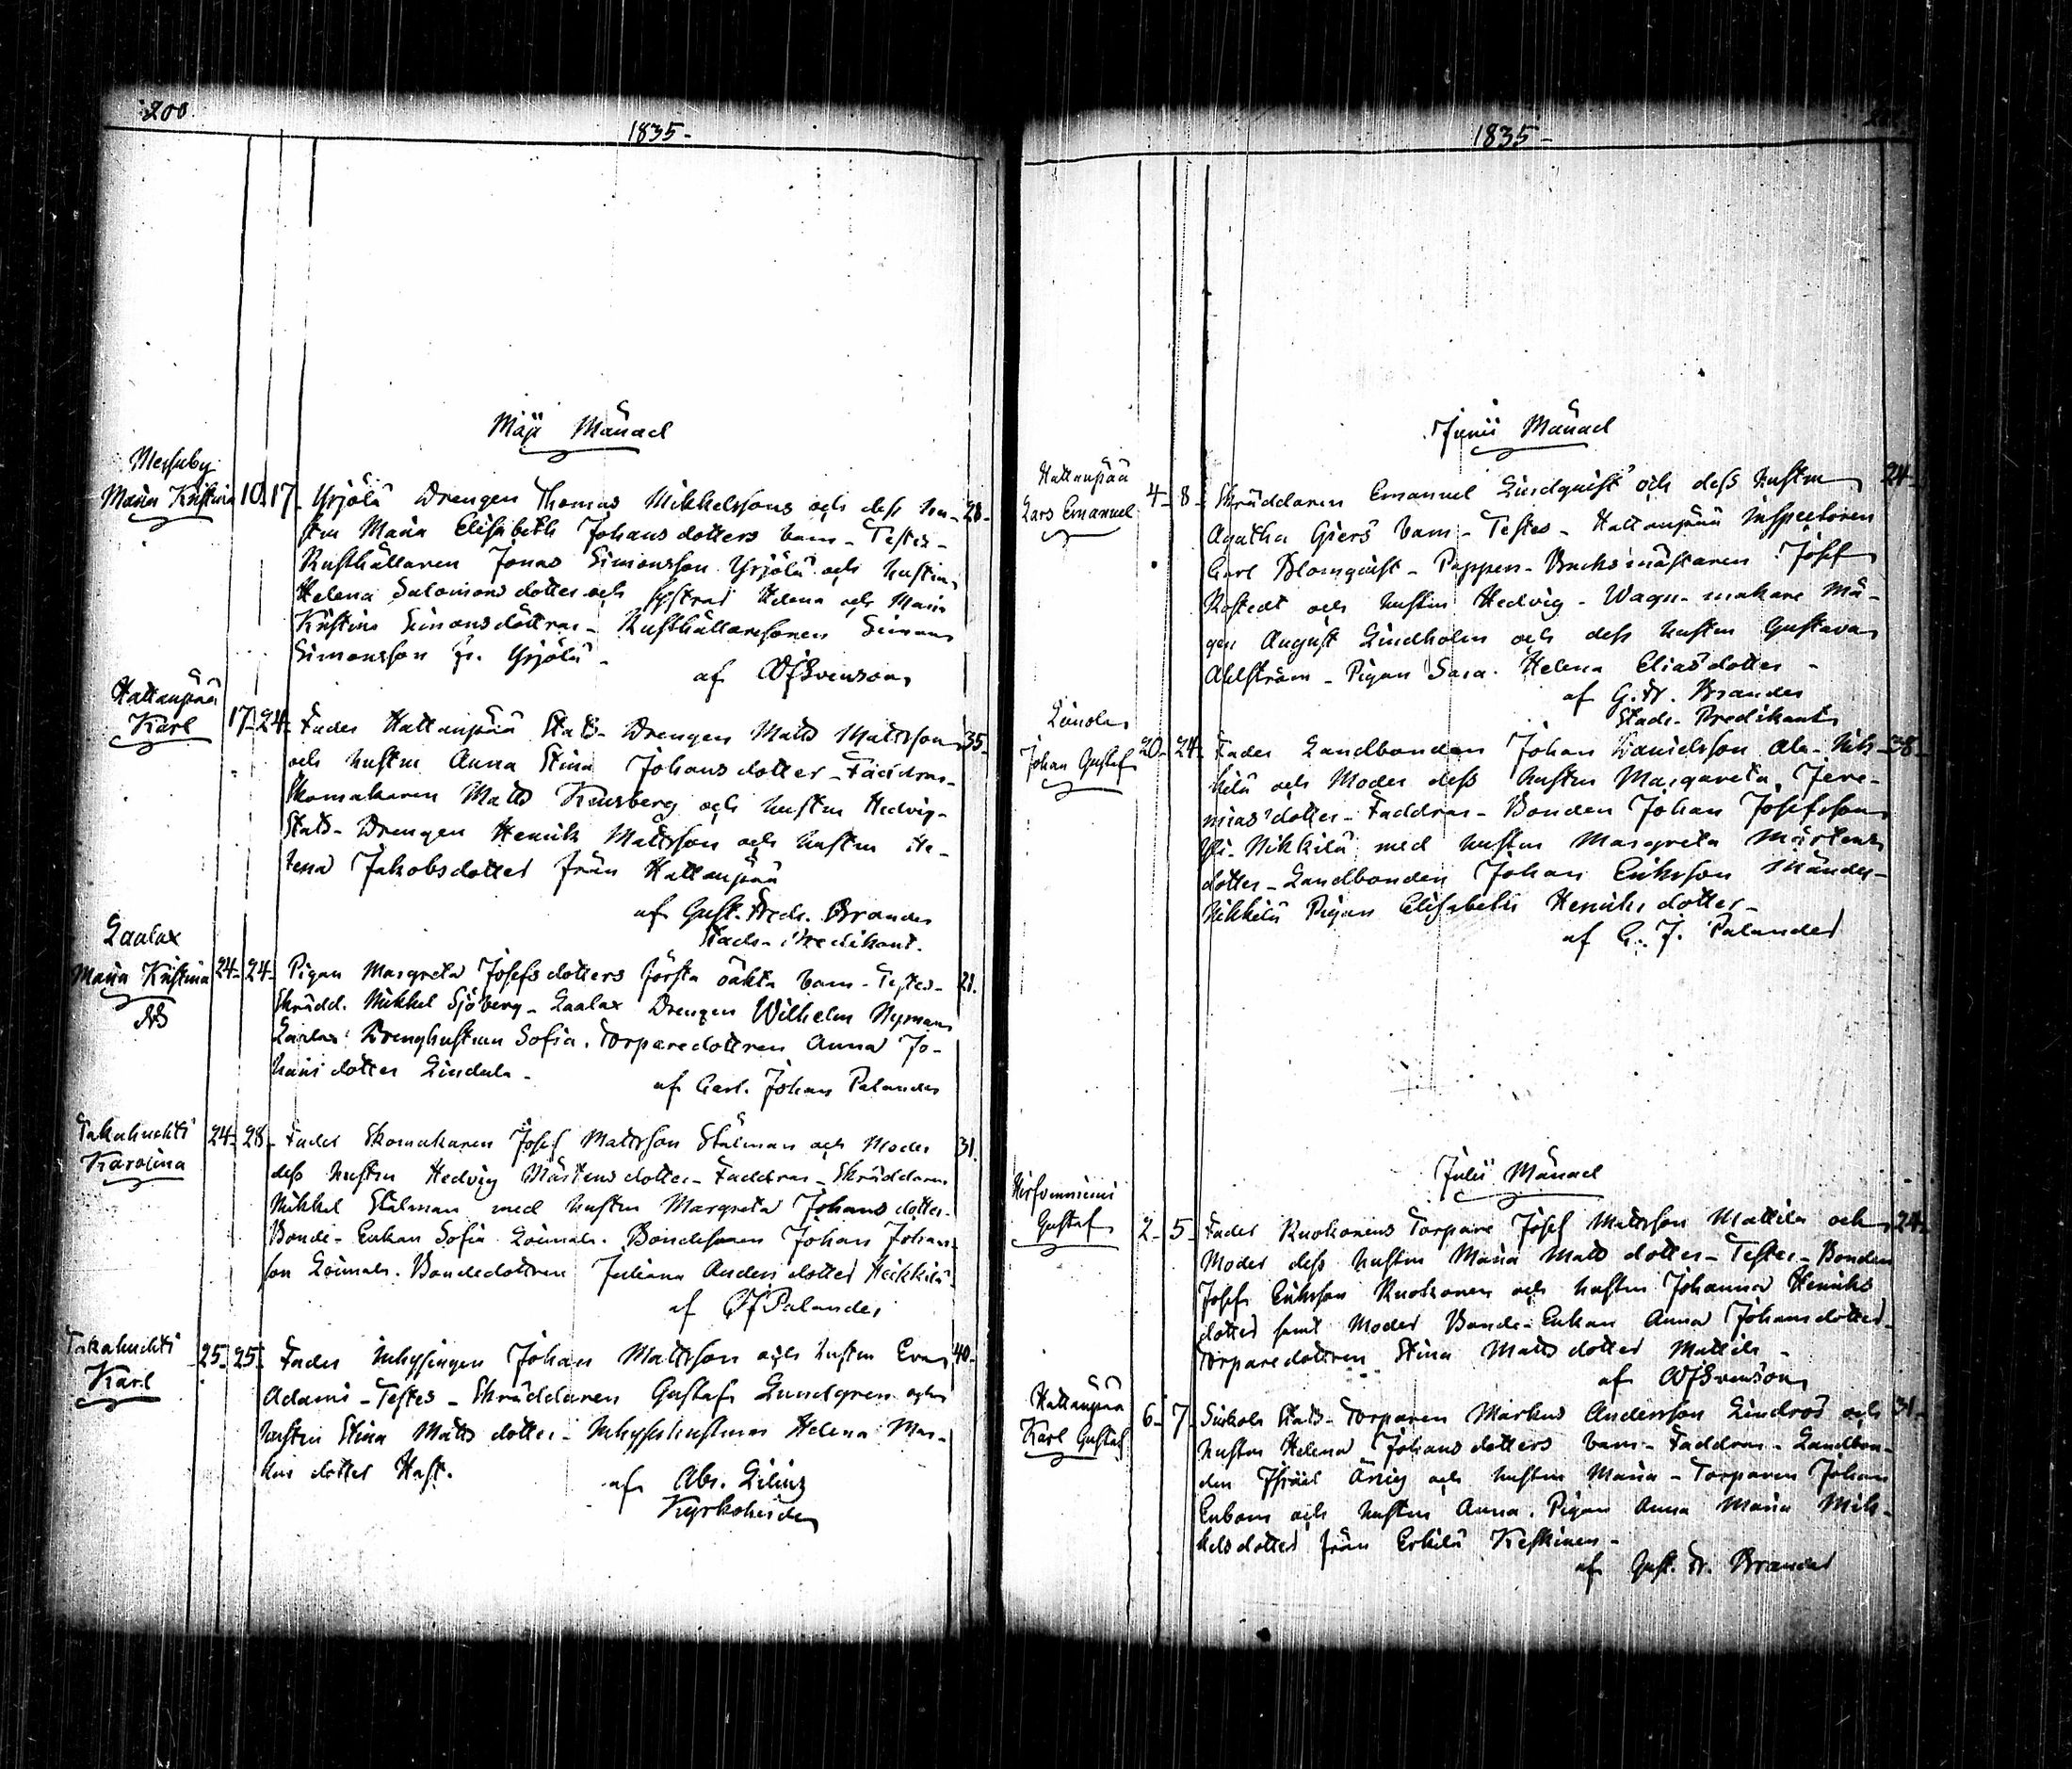 200
1835-
Māji Månad
Messuby
Maria Kristina 10. 17. Yrjölä Drengen Thomas Mikkelssons och dess hu- 28.
stru Maria Elisabeth Johansdotters barn - Testes -
Rusthållaren Jonas Simonsson Yrjölä och hustru
Helena Salomonsdotter och systrar Helena och Maria
Kristina Simonsdöttrar - Rusthållaresonen Simon
Simonsson fr. Yrjölä -
af Svenson
Hattanpää
Karl 17- 24- Fader Hattanpää Stats- Drengen Matts Mattsson 35-
och hustru Anna Stina Johansdotter - Faddrar -
Skomakaren Matts Kinsberg och hustru Hedvig -
Stats- Drengen Henrik Mattsson och hustru He-
lena Jakobsdotter från Hattanpää
af Gust. Fredr. Brander
Stads- Predikant.
Laalax
Maria Kristina 24- 24- Pigan Margreta Josefsdotters första oäkta barn - Testes - 21.
NB
Skrädd. Mikkel Sjöberg - Laalax Drengen Wilhelm Nyman
Laalax Drenghustrun Sofia. Torparedottren Anna Jo-
hansdotter Lindala -
af Carl Johan Palander
Takahuchti
Karolina 24- 28- Fader Skomakaren Josef Mattsson Stålman och Moder 31.
dess hustru Hedvig Mårtensdotter - Faddrar - Skräddaren
Mikkel Stålman med hustru Margreta Johansdotter -
Bonde- Enkan Sofia Loimala. Bondesonen Johan Johans-
son Loimala. Bondedottren Juliana Andersdotter Heikkilä -
af CJ Palander
Takahuchti
Karl 25- 25- Fader Inhysingen Johan Mattsson och hustru Eva 40-
Adami - Testes - Skräddaren Gustaf Lundgren och
hustru Stina Mattsdotter - Inhyseshustrun Helena Mar-
kusdotter Hast.
af Abr. Lilius
Kyrkoherde
1835-
Junii Månad
Hattanpää
Lars Emanuel 4- 8- Skräddaren Emanuel Lindquist och dess hustru 24-
Agatha Giers barn - Testes - Hattanpää Inspectoren
Carl Blomquist - Pappers- Bruksmästaren Josef
Rostedt och hustru Hedvig - Wagn- makare Må-
gen August Lindholm och dess hustru Gustava
Ahlström - Pigan Sara Helena Eliasdotter -
af G. Fr. Brander
Stads- Predikant
Linola
Johan Gustaf 20- 24- Fader Landbonden Johan Danielsson Ala- Nik- 38-
kilä och Moder dess hustru Margareta Jere-
miasdotter - Faddrar - Bonden Johan Josefsson
Yli- Nikkilä med hustru Margreta Mårtens
dotter - Landbonden Johan Eriksson
Nikkilä Pigan Elisabeth Henriksdotter -
af C. J. Palander
Julii Månad
Hirfvenniemi
Gustaf 2- 5- Fader Ruokonens Torpare Josef Mattsson Mattila och 24-
Moder dess hustru Maria Mattsdotter - Testes - Bonden
Josef Eriksson Ruokonen och hustru Johanna Henriks
dotter samt Moder Bonde- Enkan Anna Johansdotter -
Torparedottren Stina Mattsdotter Mattila -
af Svenson
Hattanpää
Karl Gustaf 6- 7- Sirkola Stats- Torparen Markus Andersson Lindros och 31-
hustru Helena Johansdotters barn - Faddrar - Landbon-
den Israel Ärrig och hustru Maria - Torparen Johan
Enbom och hustru Anna. Pigan Anna Maria Mik-
kelsdotter från Erkilä Keskinen -
af Gust. Fr. Brander